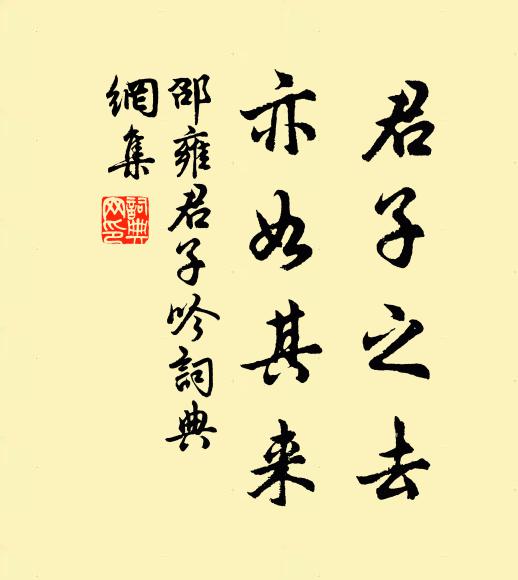 君子之去
亦如其来
邵雍君子吟詞典
網集
詞典
网印